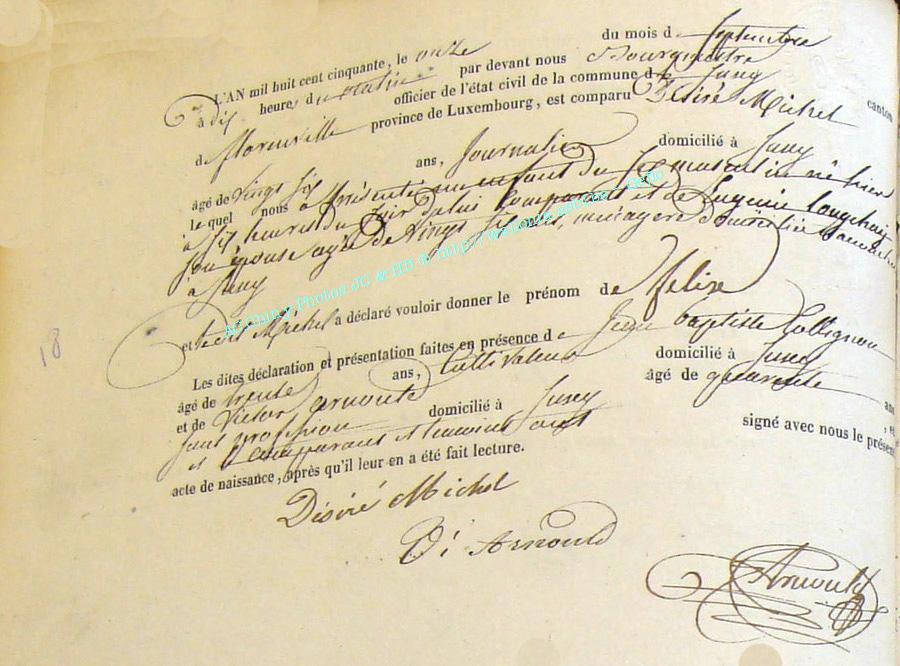 L'AN mil huit cent cinquante, le onze du mois de Septembre
à dix heures du matin par devant nous Bourgmestre
officier de l'état civil de la commune de Jusey canton
de florenville province de Luxembourg, est comparu Désiré Michel
âgé de vingt six ans, Journalier domicilié à Jusey
le quel nous a présenté un enfant du sexe masculin né hier
à six heures du soir de lui comparant et de Eugénie
son épouse agée de vingt six ans, ménagère domiciliée
à Jusey
et ledit Michel a déclaré vouloir donner le prénom de félix
Les dites déclaration et présentation faites en présence de Jean baptiste Collignon
âgé de trente ans, Cultivateur domicilié à Jusey
et de Victor arnould âgé de quarante ans
sans profession domicilié à Jusey, et
et comparant et témoins ont signé avec nous le présent
acte de naissance, après qu'il leur en a été fait lecture.
Désiré Michel
Vi Arnould
Arnould
18